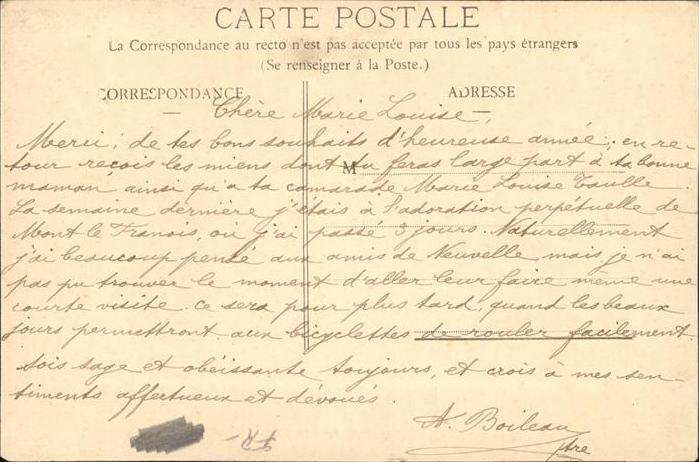 CARTE POSTALE
La Correspondance au recto n'est pas acceptée par tous les pays étrangers
(Se renseigner à la Poste.)
CORRESPONDANCE ADRESSE
Chère Marie Louise,
Merci, de tes bons souhaits d'heureuse année, en re-
tour reçois les miens dont tu feras large part à ta bonne
M
maman ainsi qu'a ta camarade Marie Louise Taulle.
La semaine dernière j'étais à l'adoration perpétuelle de
Mont le Franois, où j'ai passé 3 jours. Naturellement
j'ai beaucoup pensé aux amis de Neuvelle mais je n'ai
pas pu trouver le moment d'aller leur faire même une
courte visite. Ce sera pour plus tard, quand les beaux
jours permettront aux bicyclettes de rouler facilement
sois sage et obéissante toujours, et crois à mes sen-
timents affectueux et dévoués.
A. Boileau
ptre